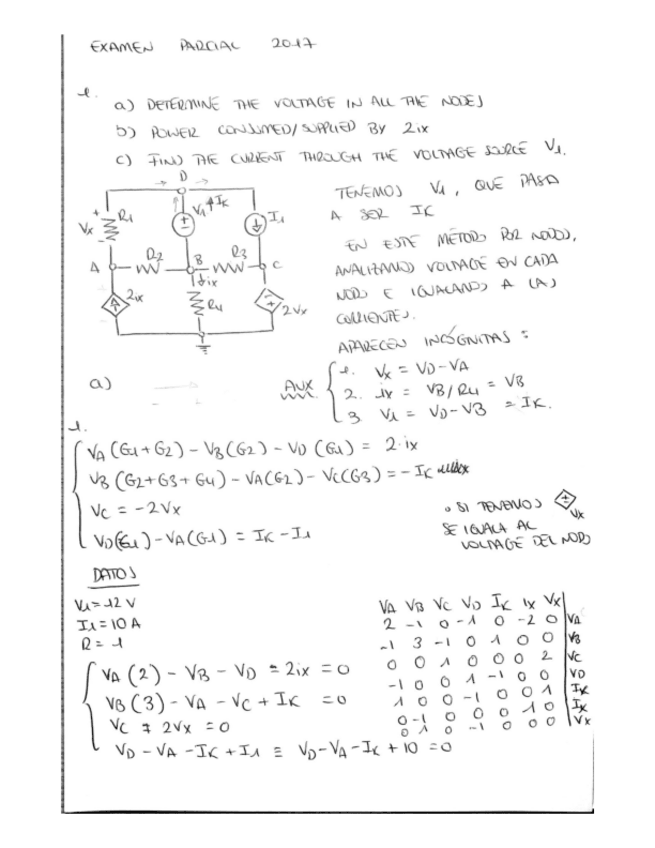 EXAMEN PARCIAL 2017
1.
a) DETERMINE THE VOLTAGE IN ALL THE NODES
b) POWER CONSUMED/SUPPLIED BY 2ix
c) FIND THE CURRENT THROUGH THE VOLTAGE SOURCE V1.
D
+ Vx - R1
V1 IK
I1
A R2 B R3 C
2ix ix R4 2Vx
TENEMOS V1, QUE PASA
A SER IK
EN ESTE MÉTODO POR NODOS,
ANALIZAMOS VOLTAGE EN CADA
NODO E IGUALANDO A LAS
CORRIENTES.
APARECEN INCÓGNITAS:
a)
AUX
1. Vx = VD-VA
2. ix = VB/R4 = VB
3. V1 = VD-VB = IK.
1.
VA(G1+G2)-VB(G2)-VD(G1) = 2·ix
VB(G2+G3+G4)-VA(G2)-VC(G3) = -IK
VC = -2Vx
VD(G1)-VA(G1) = IK-I1
· SI TENEMOS Vx
SE IGUALA AL
VOLTAGE DEL NODO
DATOS
V1=12V
I1=10A
R=1
VA(2)-VB-VD = 2ix = 0
VB(3)-VA-VC+IK = 0
VC + 2Vx = 0
VD-VA-IK+I1 ≡ VD-VA-IK+10 = 0
VA VB VC VD IK ix Vx
2 -1 0 -1 0 -2 0 VA
-1 3 -1 0 1 0 0 VB
0 0 1 0 0 0 2 VC
-1 0 0 1 -1 0 0 VD
1 0 0 -1 0 0 1 IK
0 -1 0 0 0 1 0 IX
0 1 0 -1 0 0 0 Vx